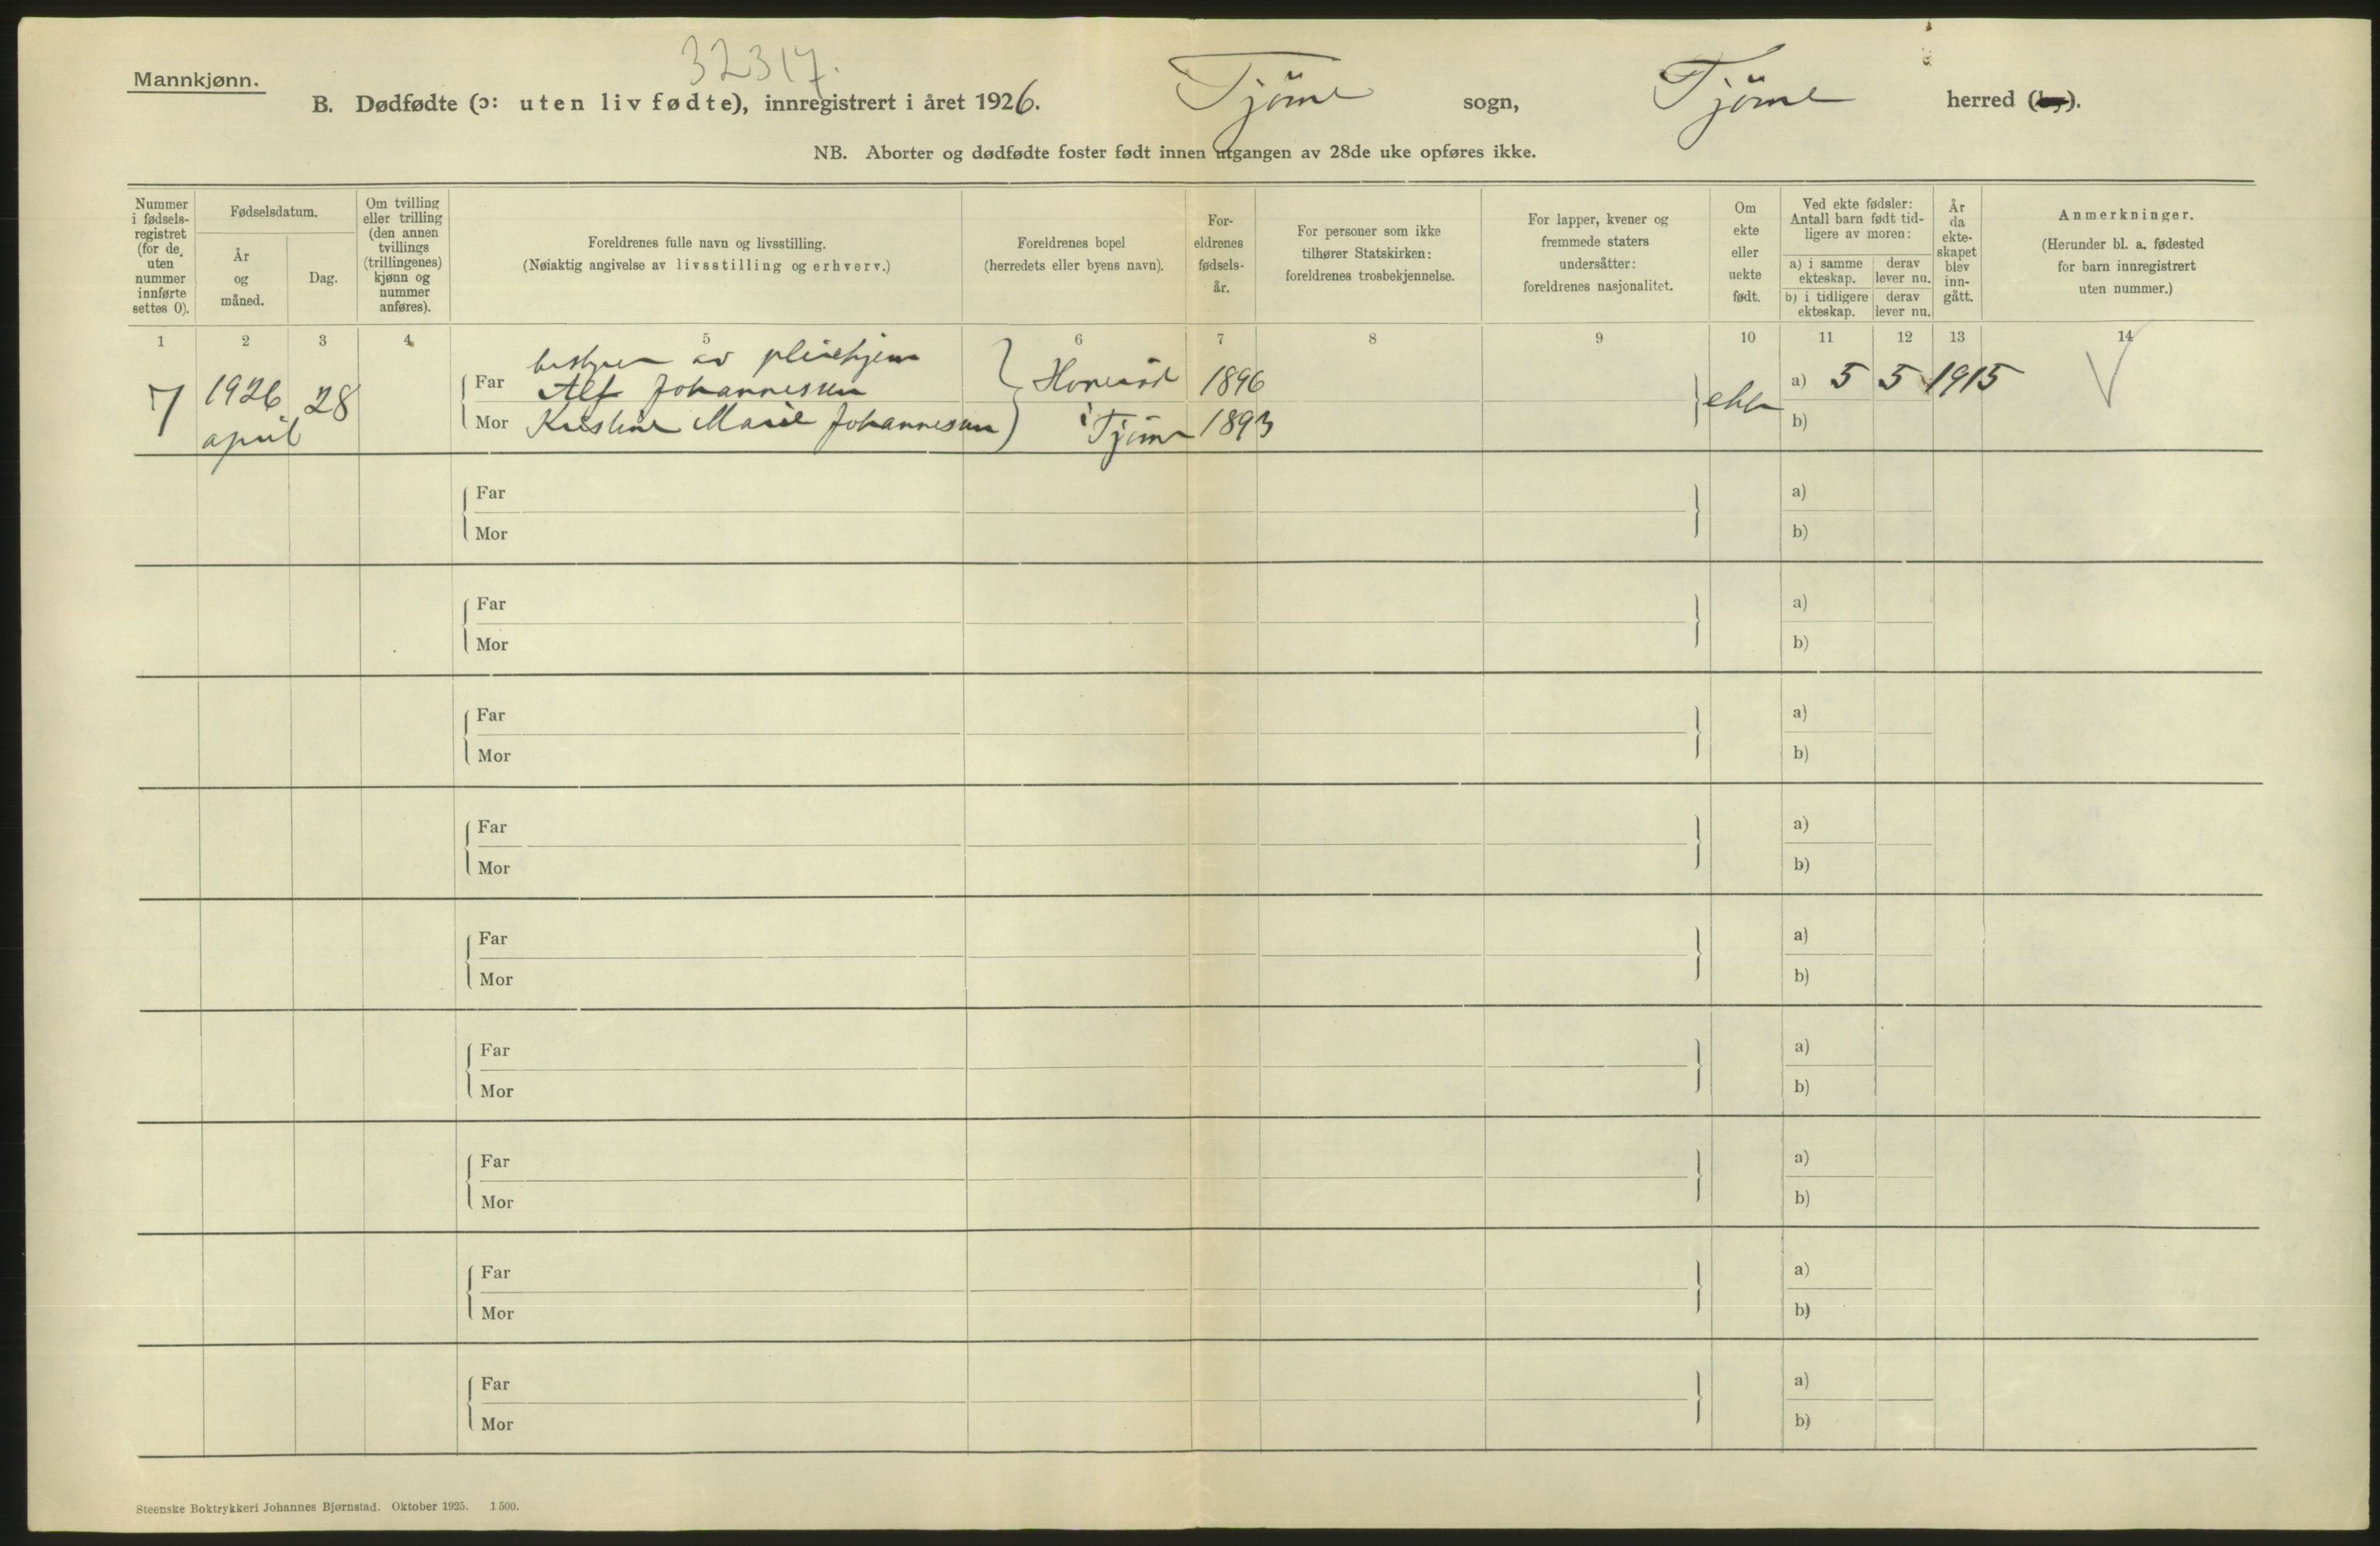 32317.
Mannkjønn.
B. Dødfødte (ɔ: uten liv fødte), innregistrert i året 1926. Tjöme sogn, Tjöme herred (by).
NB. Aborter og dødfødte foster født innen utgangen av 28de uke opføres ikke.
Nummer i fødsels-registret (for de uten nummer innførte settes 0).
Fødselsdatum.
År og måned.
Dag.
Om tvilling eller trilling (den annen tvillings (trillingenes) kjønn og nummer anføres).
Foreldrenes fulle navn og livsstilling.
(Nøiaktig angivelse av livsstilling og erhverv.)
Foreldrenes bopel
(herredets eller byens navn).
For-eldrenes fødsels-år.
For personer som ikke tilhører Statskirken: foreldrenes trosbekjennelse.
For lapper, kvener og fremmede staters undersåtter: foreldrenes nasjonalitet.
Om ekte eller uekte født.
Ved ekte fødsler: Antall barn født tid-ligere av moren:
a) i samme ekteskap.
derav lever nu.
b) i tidligere ekteskap.
derav lever nu.
År da ekte-skapet blev inn-gått.
Anmerkninger.
(Herunder bl. a. fødested for barn innregistrert uten nummer.)
1 2 3 4 5 6 7 8 9 10 11 12 13 14
bestyrer av pleiehjem
7 1926 28 Far Alf Johannessen 1896 ekte a) 5 5 1915
april Mor Kristine Marie Johannessen i Tjöme 1893 b)
Far a)
Mor b)
Far a)
Mor b)
Far a)
Mor b)
Far a)
Mor b)
Far a)
Mor b)
Far a)
Mor b)
Far a)
Mor b)
Far a)
Mor b)
Far a)
Mor b)
Steenske Boktrykkeri Johannes Bjørnstad. Oktober 1925. 1500.